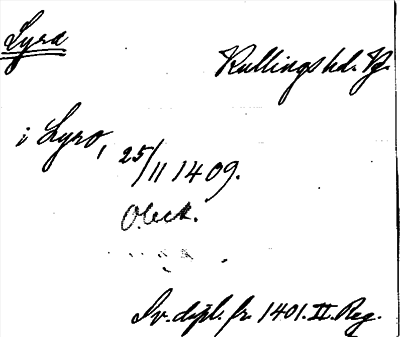 Lyra
Kullings hd. Vg.
i Lyro,
25/11 1409.
O.beck.
Sv. dipl. fr. 1401. II. Reg.